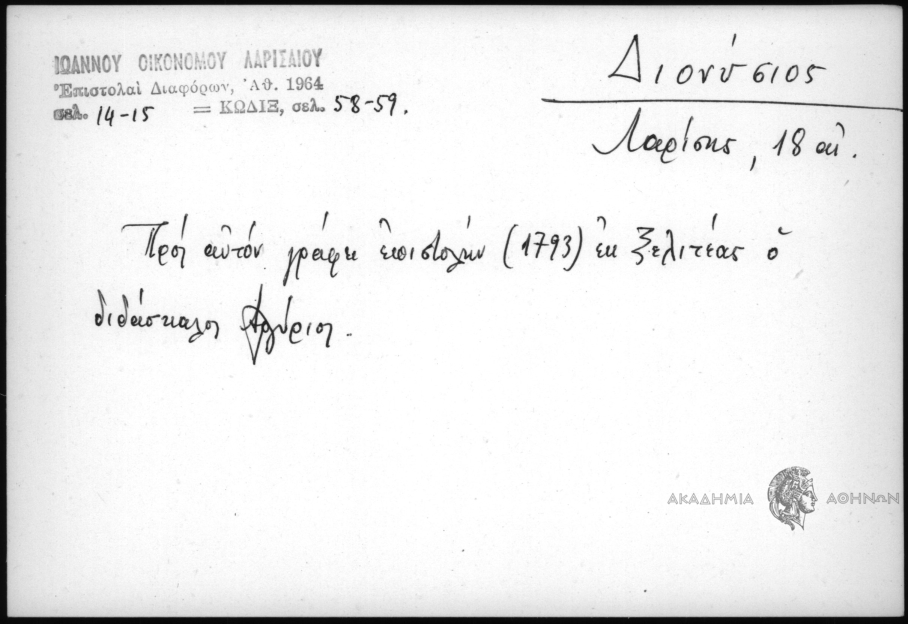 ΙΩΑΝΝΟΥ ΟΙΚΟΝΟΜΟΥ ΛΑΡΙΣΑΙΟΥ
Ἐπιστολαὶ Διαφόρων, Ἀθ. 1964
σελ. 14-15 = ΚΩΔΙΞ, σελ. 58-59.
Διονύσιος
Λαρίσης, 18 αἰ.
Πρὸς αὐτὸν γράφει ἐπιστολὴν (1793) ἐκ Ξελιτέας ὁ
διδάσκαλος
ΑΚΑΔΗΜΙΑ ΑΘΗΝΩΝ